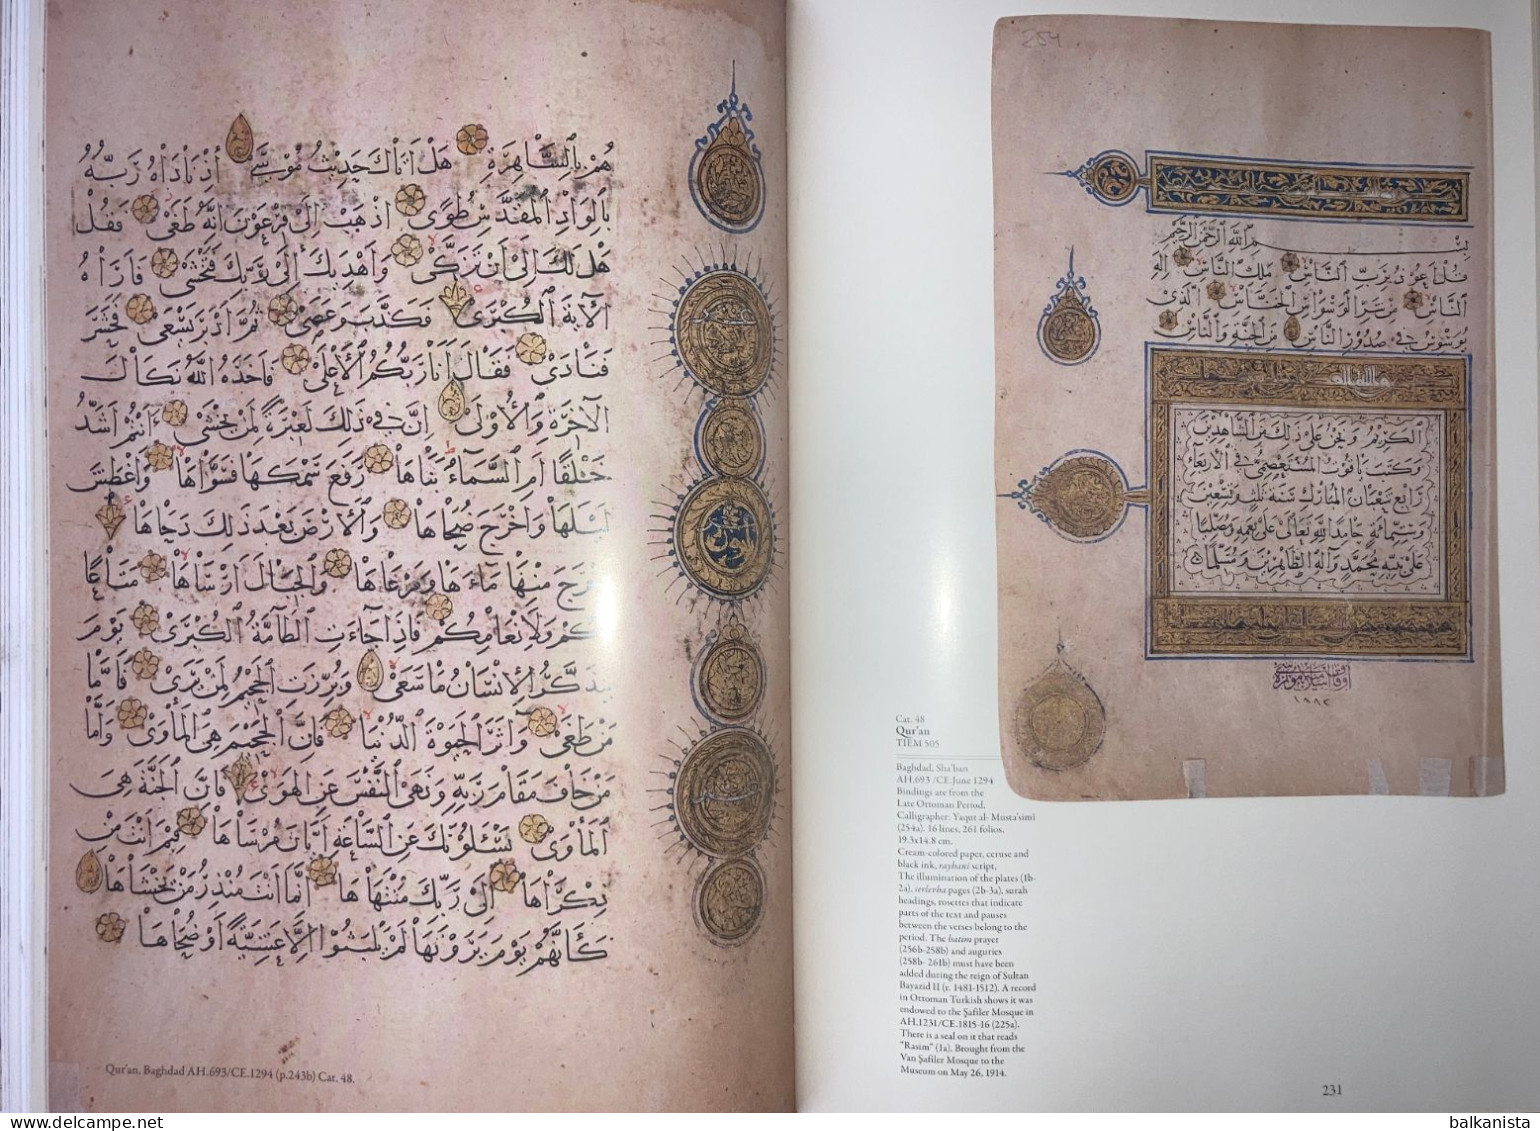 هُمْ بِالسَّاهِرَةِ هَلْ أَتَاكَ حَدِيثُ مُوسَى إِذْ نَادَاهُ رَبُّهُ
بِالْوَادِ الْمُقَدَّسِ طُوًى اذْهَبْ إِلَى فِرْعَوْنَ إِنَّهُ طَغَى فَقُلْ
هَلْ لَكَ إِلَى أَنْ تَزَكَّى وَأَهْدِيَكَ إِلَى رَبِّكَ فَتَخْشَى فَأَرَاهُ
الْآيَةَ الْكُبْرَى فَكَذَّبَ وَعَصَى ثُمَّ أَدْبَرَ يَسْعَى فَحَشَرَ
فَنَادَى فَقَالَ أَنَا رَبُّكُمُ الْأَعْلَى فَأَخَذَهُ اللَّهُ نَكَالَ
الْآخِرَةِ وَالْأُولَى إِنَّ فِي ذَلِكَ لَعِبْرَةً لِمَنْ يَخْشَى ءَأَنْتُمْ أَشَدُّ
خَلْقًا أَمِ السَّمَاءُ بَنَاهَا رَفَعَ سَمْكَهَا فَسَوَّاهَا وَأَغْطَشَ
لَيْلَهَا وَأَخْرَجَ ضُحَاهَا وَالْأَرْضَ بَعْدَ ذَلِكَ دَحَاهَا
أَخْرَجَ مِنْهَا مَاءَهَا وَمَرْعَاهَا وَالْجِبَالَ أَرْسَاهَا مَتَاعًا
لَكُمْ وَلِأَنْعَامِكُمْ فَإِذَا جَاءَتِ الطَّامَّةُ الْكُبْرَى يَوْمَ
يَتَذَكَّرُ الْإِنْسَانُ مَا سَعَى وَبُرِّزَتِ الْجَحِيمُ لِمَنْ يَرَى فَأَمَّا
مَنْ طَغَى وَآثَرَ الْحَيَوةَ الدُّنْيَا فَإِنَّ الْجَحِيمَ هِيَ الْمَأْوَى وَأَمَّا
مَنْ خَافَ مَقَامَ رَبِّهِ وَنَهَى النَّفْسَ عَنِ الْهَوَى فَإِنَّ الْجَنَّةَ هِيَ
الْمَأْوَى يَسْئَلُونَكَ عَنِ السَّاعَةِ أَيَّانَ مُرْسَاهَا فِيمَ أَنْتَ مِنْ
ذِكْرَاهَا إِلَى رَبِّكَ مُنْتَهَاهَا إِنَّمَا أَنْتَ مُنْذِرُ مَنْ يَخْشَاهَا
كَأَنَّهُمْ يَوْمَ يَرَوْنَهَا لَمْ يَلْبَثُوا إِلَّا عَشِيَّةً أَوْ ضُحَاهَا
Qur'an, Baghdad AH.693/CE.1294 (p.243b) Cat. 48.
254
بِسْمِ اللَّهِ الرَّحْمَنِ الرَّحِيمِ
قُلْ أَعُوذُ بِرَبِّ النَّاسِ مَلِكِ النَّاسِ إِلَهِ
النَّاسِ مِنْ شَرِّ الْوَسْوَاسِ الْخَنَّاسِ الَّذِي
يُوَسْوِسُ فِي صُدُورِ النَّاسِ مِنَ الْجِنَّةِ وَالنَّاسِ
الكريم ونحن على ذلك من الشاهدين
وكتب ياقوت المستعصمي في الاربعاء
رابع شعبان المبارك سنة ثلث وتسعين
وستمائة حامدا لله تعالى على نعمه ومصليا
على نبيه محمد وآله الطاهرين ومسلما
١٩٨٢
Cat. 48
Qur'an
TIEM 505
Baghdad, Sha'ban
AH.693 /CE.June 1294
Bindings are from the
Late Ottoman Period.
Calligrapher: Yaqut al- Musta'simi
(254a). 16 lines, 261 folios.
19.3x14.8 cm.
Cream-colored paper, ceruse and
black ink, rayhani script,
The illumination of the plates (1b-
2a), serlevha pages (2b-3a), surah
headings, rosettes that indicate
parts of the text and pauses
between the verses belong to the
period. The hatim prayer
(256b-258b) and auguries
(258b- 261b) must have been
added during the reign of Sultan
Bayazid II (r. 1481-1512). A record
in Ottoman Turkish shows it was
endowed to the Şafiler Mosque in
AH.1231/CE.1815-16 (225a).
There is a seal on it that reads
"Rasim" (1a). Brought from the
Van Şafiler Mosque to the
Museum on May 26, 1914.
231
balkanista